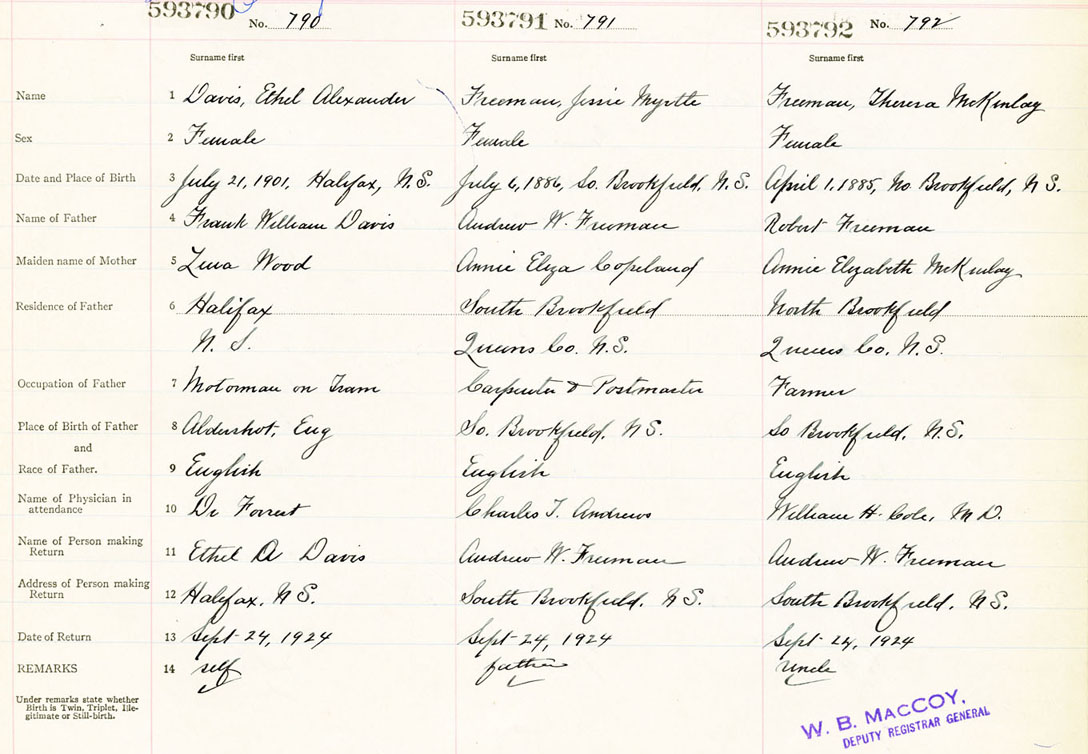 593790 No. 790 593791 No. 791 593792 No. 792
Surname first Surname first Surname first
Name 1 Davis, Ethel Alexander Freeman, Jessie Myrtle Freeman, Theresa McKinlay
Sex 2 Female Female Female
Date and Place of Birth 3 July 21, 1901, Halifax, N.S. July 6, 1886, So. Brookfield, N.S. April 1, 1885, No. Brookfield, N S.
Name of Father 4 Frank William Davis Andrew W. Freeman Robert Freeman
Maiden name of Mother 5 Wood Annie Eliza Copeland Annie Elizabeth McKinlay
Residence of Father 6 Halifax South Brookfield North Brookfield
N. S. Queens Co. N.S. Queens Co. N.S.
Occupation of Father 7 Motorman on Tram Carpenter & Postmaster Farmer
Place of Birth of Father 8 Aldershot, Eng So. Brookfield, N S. So Brookfield, N.S.
and
Race of Father. 9 English English English
Name of Physician in
attendance 10 Dr Forrest Charles T. Andrews William H. Cole, M D.
Name of Person making
Return 11 Ethel A Davis Andrew W. Freeman Andrew W. Freeman
Address of Person making
Return 12 Halifax, N S. South Brookfield, N S. South Brookfield, N S.
Date of Return 13 Sept 24, 1924 Sept 24, 1924 Sept 24, 1924
REMARKS 14 self father uncle
Under remarks state whether
Birth is Twin, Triplet, Ille-
gitimate or Still-birth.
W. B. MACCOY,
DEPUTY REGISTRAR GENERAL